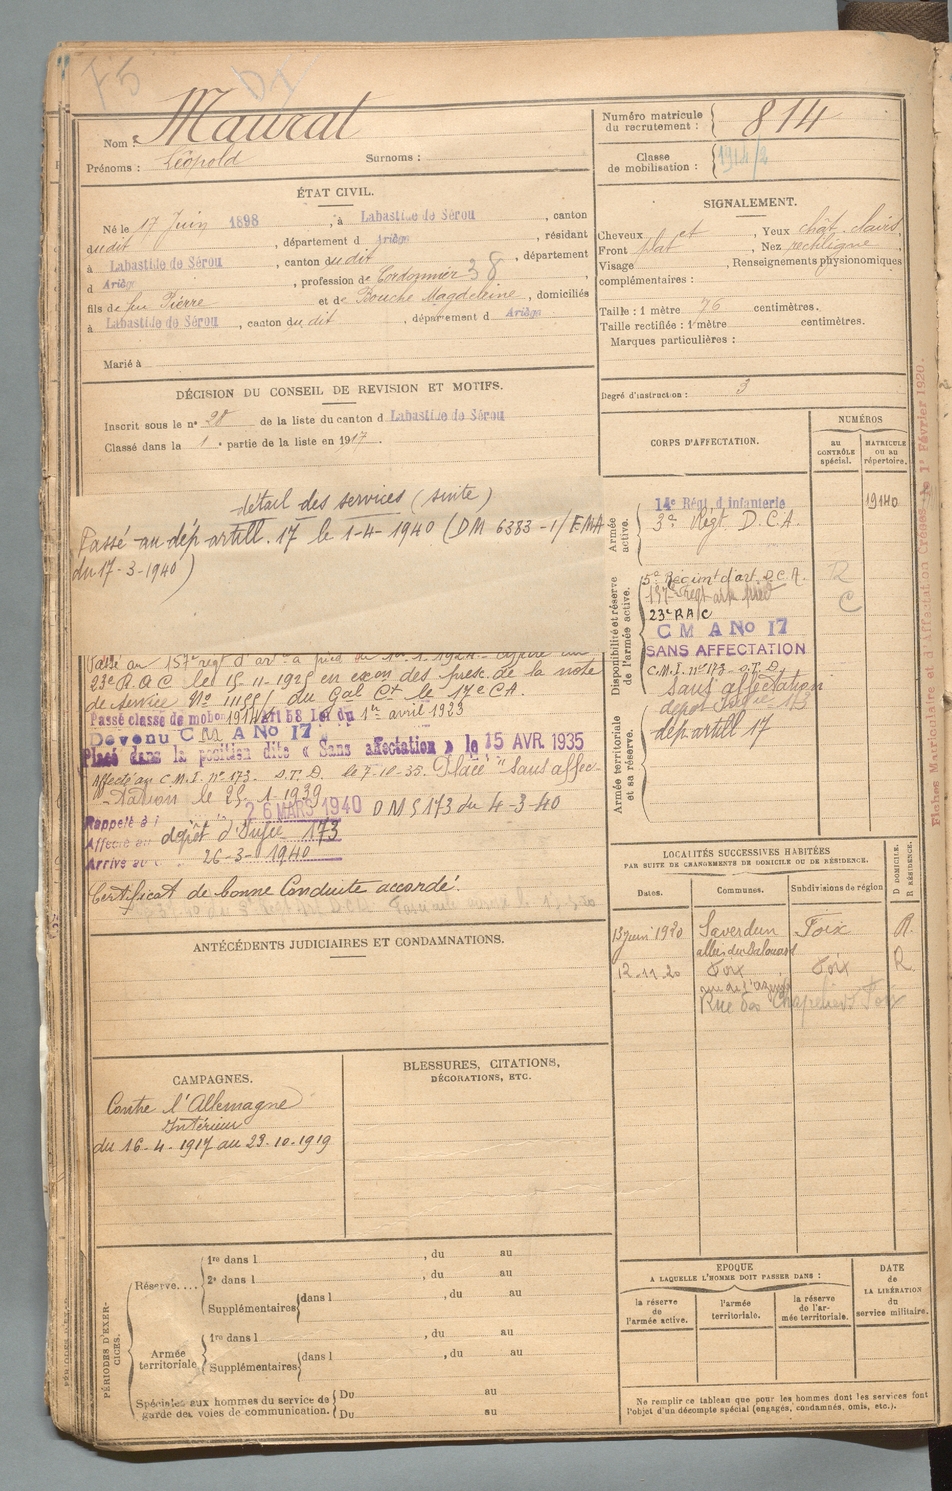 F5 D1
Nom : Maurat
Prénoms : Léopold Surnoms :
Numéro matricule du recrutement : 814
Classe de mobilisation : 1914/2
ÉTAT CIVIL.
Né le 17 Juin 1898, à Labastide de Sérou, canton
dudit, département d Ariège, résidant
à Labastide de Sérou, canton dudit, département
d Ariège, profession de Cordonnier 38,
fils de feu Pierre et de Bouche Magdeleine, domiciliés
à Labastide de Sérou, canton du dit, département d Ariège
Marié à
SIGNALEMENT.
Cheveux et, Yeux chât. clairs
Front plat, Nez rectiligne,
Visage, Renseignements physionomiques
complémentaires :
Taille : 1 mètre 76 centimètres.
Taille rectifiée : 1 mètre centimètres.
Marques particulières :
Degré d'instruction : 3
DÉCISION DU CONSEIL DE REVISION ET MOTIFS.
Inscrit sous le nº 28 de la liste du canton d Labastide de Sérou
Classé dans la 1e partie de la liste en 1917.
détail des services (suite)
Passé au dép artill. 17 le 1-4-1940 (DM 6383-1/EMA
du 17-3-1940)
Passé au 157e régt d'art à pied
23e R.A.C le 15-11-1925 en excon des presc. de la note
de service Nº 11551 du Gal Ct le 17e C.A.
Passé classe de mobon 1914 Art 58 Loi du 1er avril 1923
Devenu C M A No 17
Placé dans la position dite « Sans affectation » le 15 AVR. 1935
Affecté au C.M.I. nº 173. S.T.D. le 7-10-35. Placé "Sans affec-
tation" le 25-1-1939
Rappelé à 26 MARS 1940 D M 5173 du 4-3-40
Affecté au dépôt d'Infie 173
Arrivé au 26-3-1940
Certificat de bonne Conduite accordé.
CORPS D'AFFECTATION.
NUMÉROS
au CONTRÔLE spécial.
MATRICULE ou au répertoire.
Armée active.
14e Régt d'infanterie 19140
3e Régt D.C.A.
Disponibilité et réserve de l'armée active.
5e Régiment d'art. D.C.A. R
157e régt art pied C
23e RAC
C M A No 17
SANS AFFECTATION
C.M.I. nº 173 - S.T.D.
Sans affectation
dépôt Infie 173
Armée territoriale et sa réserve.
dép artill 17
Fiches Matriculaire et d'Affectation Créées le 1er Février 1920.
LOCALITÉS SUCCESSIVES HABITÉES
PAR SUITE DE CHANGEMENTS DE DOMICILE OU DE RÉSIDENCE.
Dates. Communes. Subdivisions de région D DOMICILE. R RÉSIDENCE.
13 juin 1920 Saverdun Foix R.
12.11.20 Foix Foix R
Rue des Chapeliers Foix
ANTÉCÉDENTS JUDICIAIRES ET CONDAMNATIONS.
CAMPAGNES.
Contre l'Allemagne
Intérieur
du 16-4-1917 au 23-10-1919
BLESSURES, CITATIONS, DÉCORATIONS, ETC.
PÉRIODES D'EXERCICES.
Réserve....
1re dans l , du au
2e dans l , du au
Supplémentaires dans l , du au
Armée territoriale
1re dans l , du au
Supplémentaires dans l , du au
Spéciales aux hommes du service de garde des voies de communication.
Du au
Du au
EPOQUE
A LAQUELLE L'HOMME DOIT PASSER DANS :
la réserve de l'armée active.
l'armée territoriale.
la réserve de l'armée territoriale.
DATE de LA LIBÉRATION du service militaire.
Ne remplir ce tableau que pour les hommes dont les services font
l'objet d'un décompte spécial (engagés, condamnés, omis, etc.).